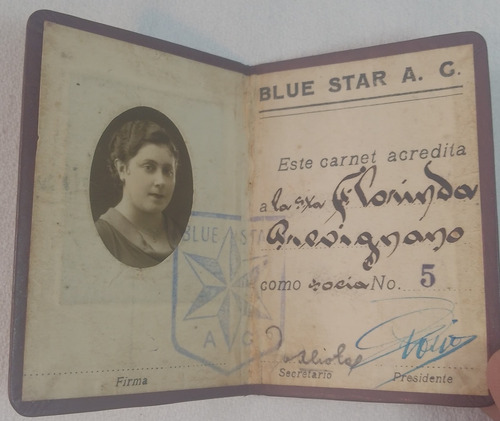 BLUE STAR A. C.
Este carnet acredita
a la srta Florinda
Prevignano
como socia No. 5
BLUE STAR
A C
Firma
Secretario
Presidente